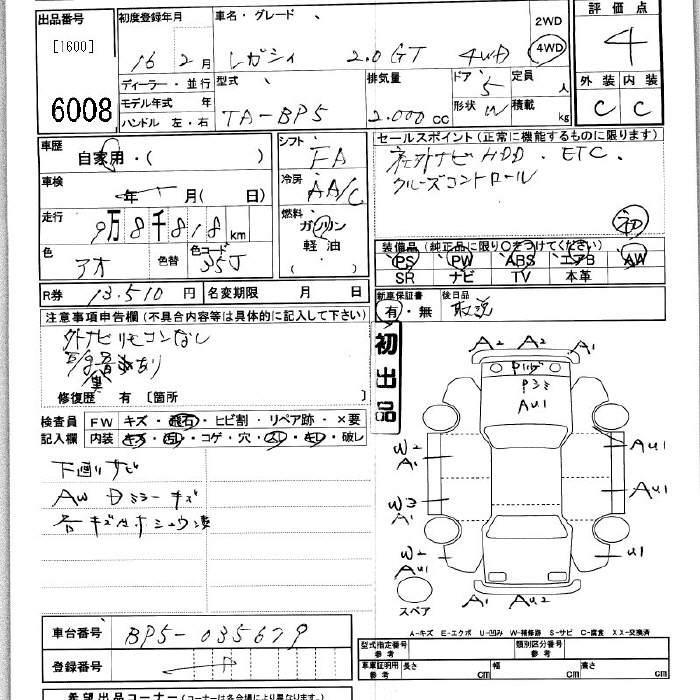 出品番号
[1600]
6008
初度登録年月
16年 2月
車名・グレード
レガシィ 2.0GT 4WD
2WD
4WD
評価点
4
外装 内装
C C
ディーラー・並行
モデル年式 年
ハンドル 左・右
型式
TA-BP5
排気量
2.000cc
ドア 5
形状 W
定員 人
積載 kg
車歴
自家用・( )
車検
年 月( 日)
走行
9万8千818km
色
アオ
色替
色コード
35J
シフト
FA
冷房
AA/C
燃料
ガソリン
軽油
( )
セールスポイント(正常に機能するものに限ります)
社外ナビHDD. ETC.
クルーズコントロール
初
装備品(純正品に限り○をつけてください)
PS PW ABS エアB AW
SR ナビ TV 本革
R券 13.510円 名変期限 月 日
新車保証書
有・無
後日品
取説
注意事項申告欄(不具合内容等は具体的に記入して下さい)
外ナビリモコンなし
修復歴 有 [箇所 ]
初出品
検査員
記入欄
FW キズ・飛石・ヒビ割・リペア跡・×要
内装 キズ・汚レ・コゲ・穴・スレ・キレ・破レ
下廻りサビ
AW Dミラーキズ
各キズ
A2 A2 A1
Pミラ
AU1
W2
A1
AU1
W3
A1
AU1
W2
AU1
U1
スペア
A1 AU2
A-キズ E-エクボ U-凹み W-補修跡 S-サビ C-腐食 XX-交換済
車台番号
BP5-035679
登録番号
型式指定番号
参考
類別区分番号
参考
車庫証明用
参考
長さ cm 幅 cm 高さ cm
希望出品コーナー(コーナーは各会場により異なります。)